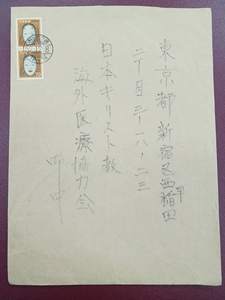 東京都 新宿区西早稲田
二丁目三-一八・二三
日本キリスト教
海外医療協力会
御中